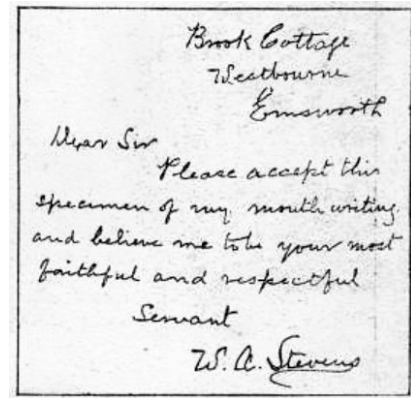 Brook Cottage
Westbourne
Emsworth
Dear Sir
Please accept this
specimen of my mouth writing
and believe me to be your most
faithful and respectful
Servant
W. A. Stevens